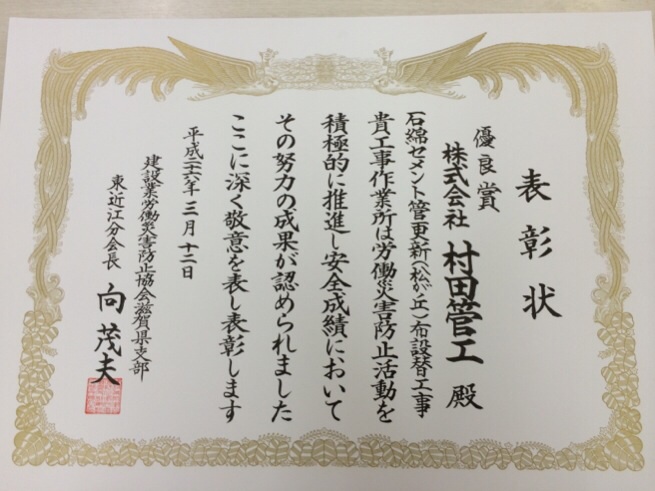 表彰状
優良賞
株式会社 村田管工 殿
石綿セメント管更新(松が丘)布設替工事
貴工事作業所は労働災害防止活動を
積極的に推進し安全成績において
その努力の成果が認められました
ここに深く敬意を表し表彰します
平成二十六年三月十二日
建設業労働災害防止協会滋賀県支部
東近江分会長 向 茂夫